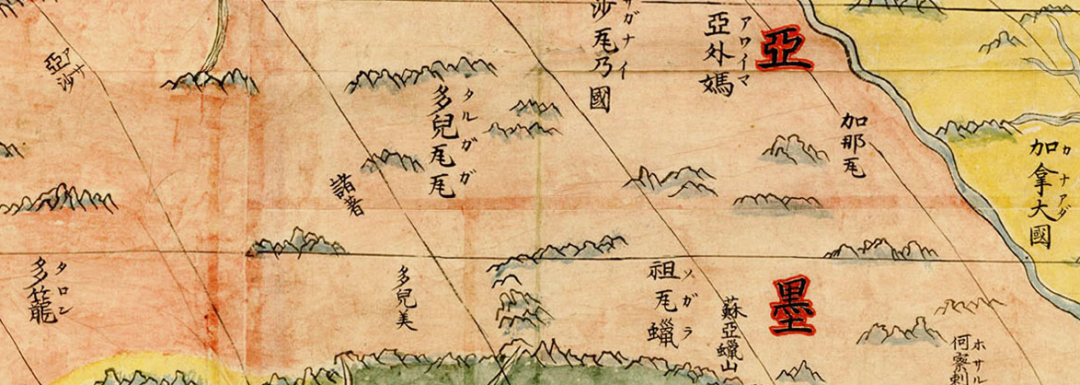 加拿大國
カナアダ
加那瓦
亞
墨
亞外媽
アワイマ
沙瓦乃國
ガナイ
祖瓦蠟
ソガラ
蘇亞蠟山
ホサル
多兒瓦瓦
タルガガ
多兒美
諸著
亞沙
アサ
多籠
タロン